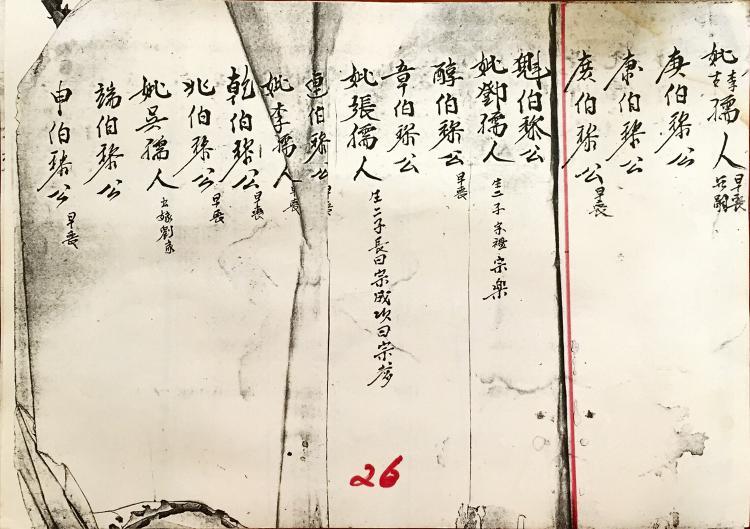 妣李古孺人早喪乏嗣
庚伯琛公
康伯琛公
廣伯琛公早喪
魁伯琛公
妣鄧孺人生二子宗禮宗樂
醇伯琛公早喪
章伯琛公
妣張孺人生二子長曰宗成次曰宗
連伯琛公早喪
妣李孺人早喪
乾伯琛公早喪
兆伯琛公早喪
妣吳孺人出嫁劉家
端伯琛公
申伯琛公早喪
26